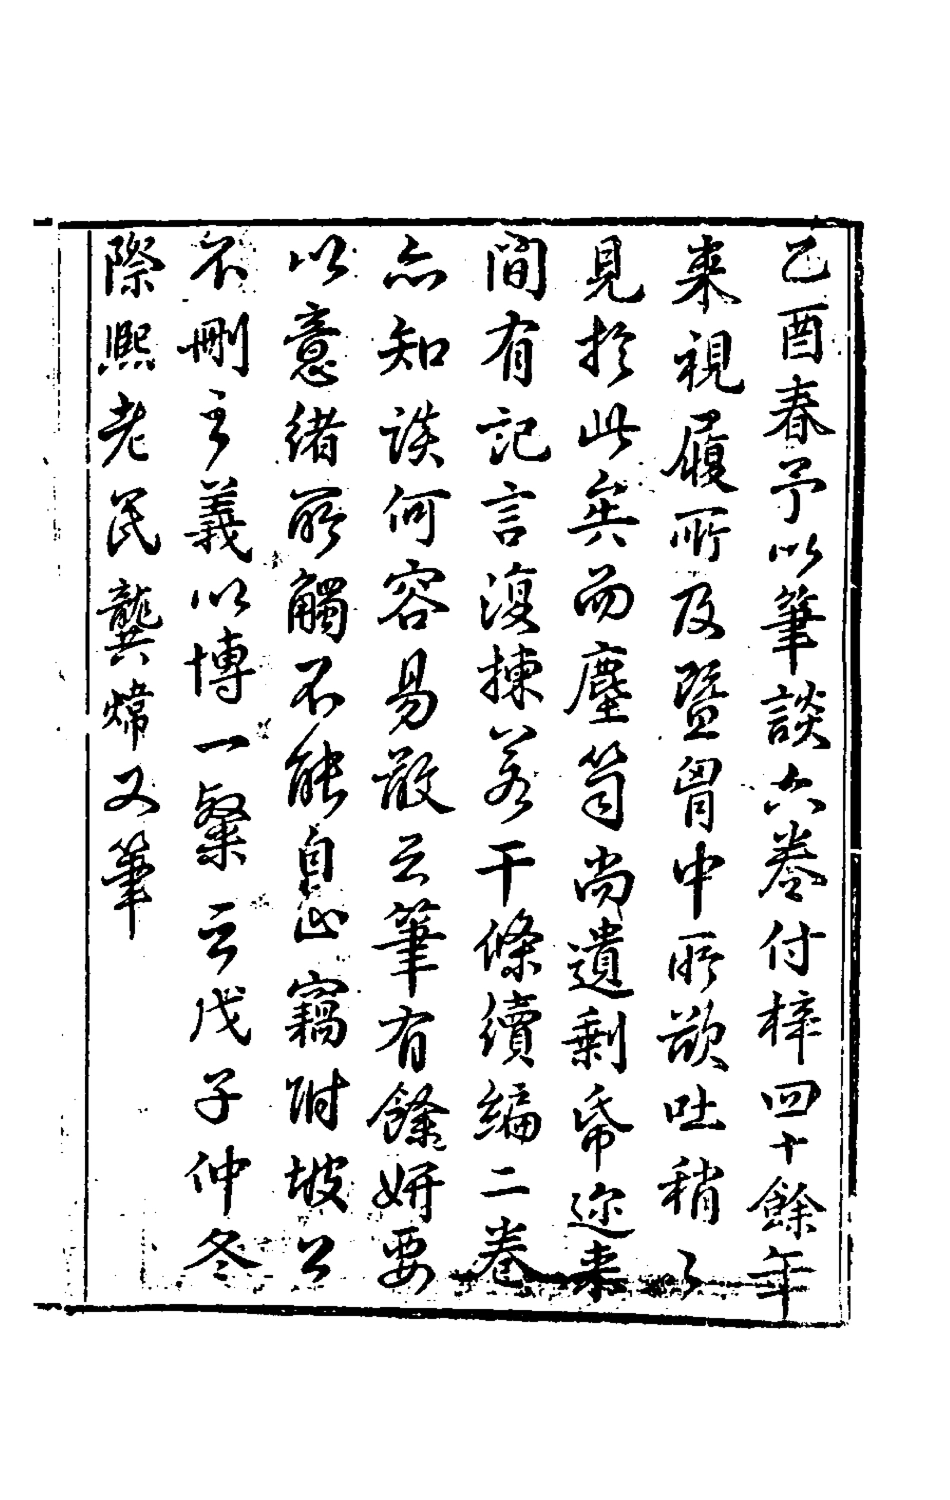 乙酉春予以筆談六卷付梓四十餘年
来視履所及暨胷中所欲吐稍〻
見於此矣而塵笥尚遺剩帋迩来
間有記言復揀若干條續編二卷
亦知談何容易敢云筆有餘妍要
以意緒所觸不能自止竊附坡公
不刪之義以博一粲云戊子仲冬
際熙老民龔煒又筆